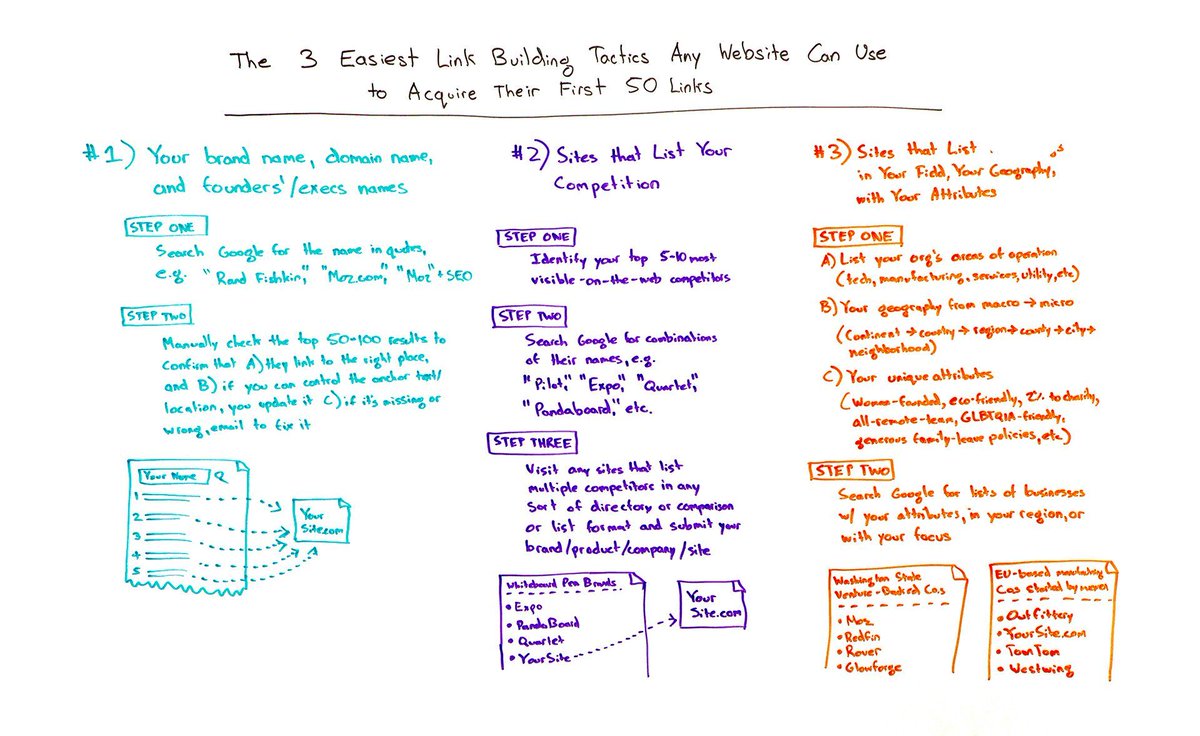 The 3 Easiest Link Building Tactics Any Website Can Use
to Acquire Their First 50 Links
#1) Your brand name, domain name,
and founders'/execs names
STEP ONE
Search Google for the name in quotes,
e.g. "Rand Fishkin," "Moz.com," "Moz"+SEO
STEP TWO
Manually check the top 50-100 results to
confirm that A) they link to the right place,
and B) if you can control the anchor text/
location, you update it C) if it's missing or
wrong, email to fix it
Your Name
1
2
3
4
5
Your
Site.com
#2) Sites that List Your
Competition
STEP ONE
Identify your top 5-10 most
visible-on-the-web competitors
STEP TWO
Search Google for combinations
of their names, e.g.
"Pilot," "Expo," "Quartet,"
"Pandaboard," etc.
STEP THREE
Visit any sites that list
multiple competitors in any
sort of directory or comparison
or list format and submit your
brand/product/company/site
Whiteboard Pen Brands
• Expo
• PandaBoard
• Quartet
• YourSite
Your
Site.com
#3) Sites that List
in Your Field, Your Geography,
with Your Attributes
STEP ONE
A) List your org's areas of operation
(tech, manufacturing, services, utility, etc)
B) Your geography from macro → micro
(Continent → country → region → county → city →
neighborhood)
C) Your unique attributes
(Women-founded, eco-friendly, 2% to charity,
all-remote-team, GLBTQIA-friendly,
generous family-leave policies, etc)
STEP TWO
Search Google for lists of businesses
w/ your attributes, in your region, or
with your focus
Washington State
Venture-Backed Co.s
• Moz
• Redfin
• Rover
• Glowforge
EU-based manufacturing
Cos started by
• Outfittery
• YourSite.com
• TomTom
• Westwing